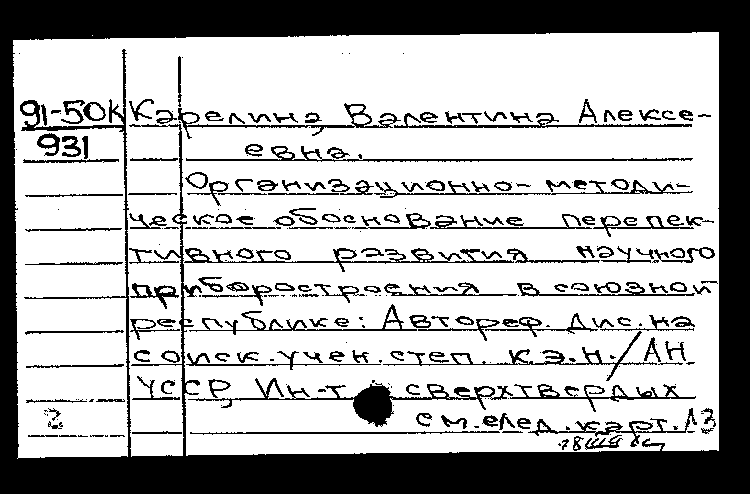 91-50К Карелина, Валентина Алексе-
931 евна.
Организационно-методи-
ческое обоснование перепек-
тивного развития научного
приборостроения в союзной
республике: Автореф. дис. на
соиск. учен. степ. к.э.н. / АН
УССР, Ин-т сверхтвердых
2 см. след. карт. ΛЗ